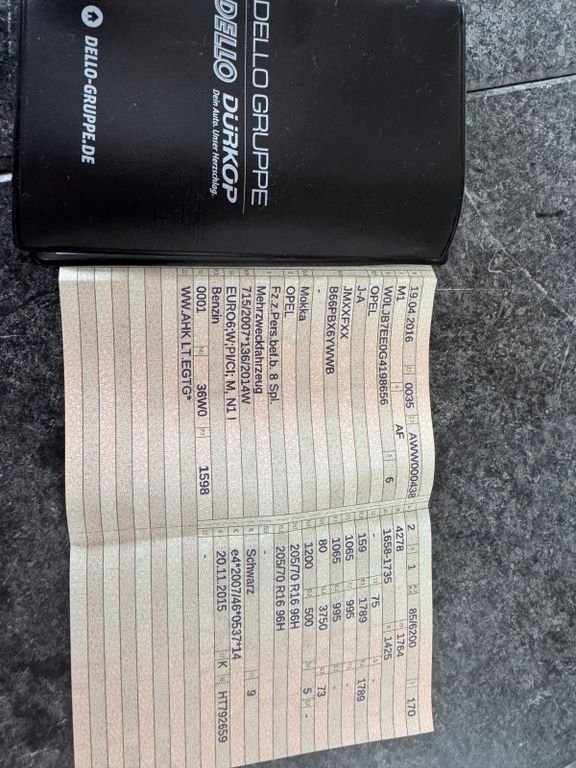 DELLO GRUPPE
DELLO DÜRKOP
Dein Auto. Unser Herzschlag.
DELLO-GRUPPE.DE
19.04.2016 0035 AWW000438
M1 AF
W0LJB7EE0G4198656 6
OPEL
J-A
JMXXFXX
B66PBX6YWWB
-
Mokka
OPEL
Fz.z.Pers.bef.b. 8 Spl.
Mehrzweckfahrzeug
715/2007*136/2014W
EURO6;W;PI/CI; M, N1 I
Benzin
0001 36W0 1598
WW.AHK LT.EGTG*
2 1 85/6200 170
4278 1764
1658-1735 1425
- 75 -
159 1789 1789
1065 995 -
1065 995 -
80 3750 73
1200 500 5 -
205/70 R16 96H
205/70 R16 96H
-
Schwarz 9
e4*2007/46*0537*14
20.11.2015 K HT792659
-